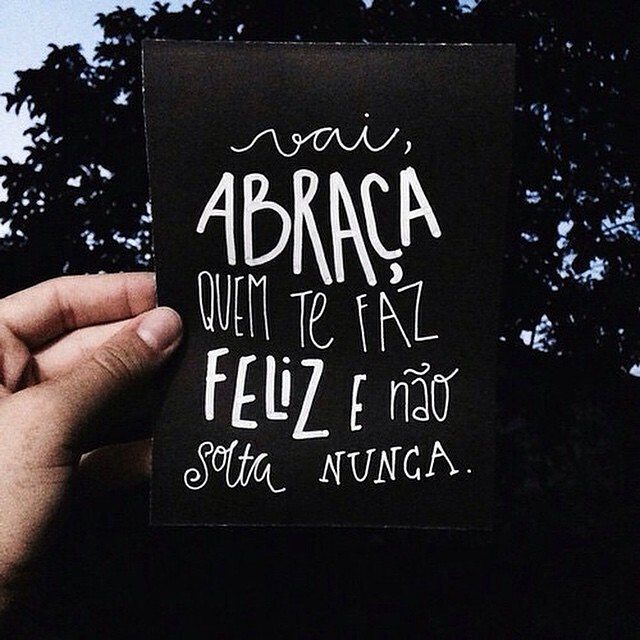 vai,
ABRAÇA
QUEM Te FAZ
FELiZ E não
Solta NUNCA.